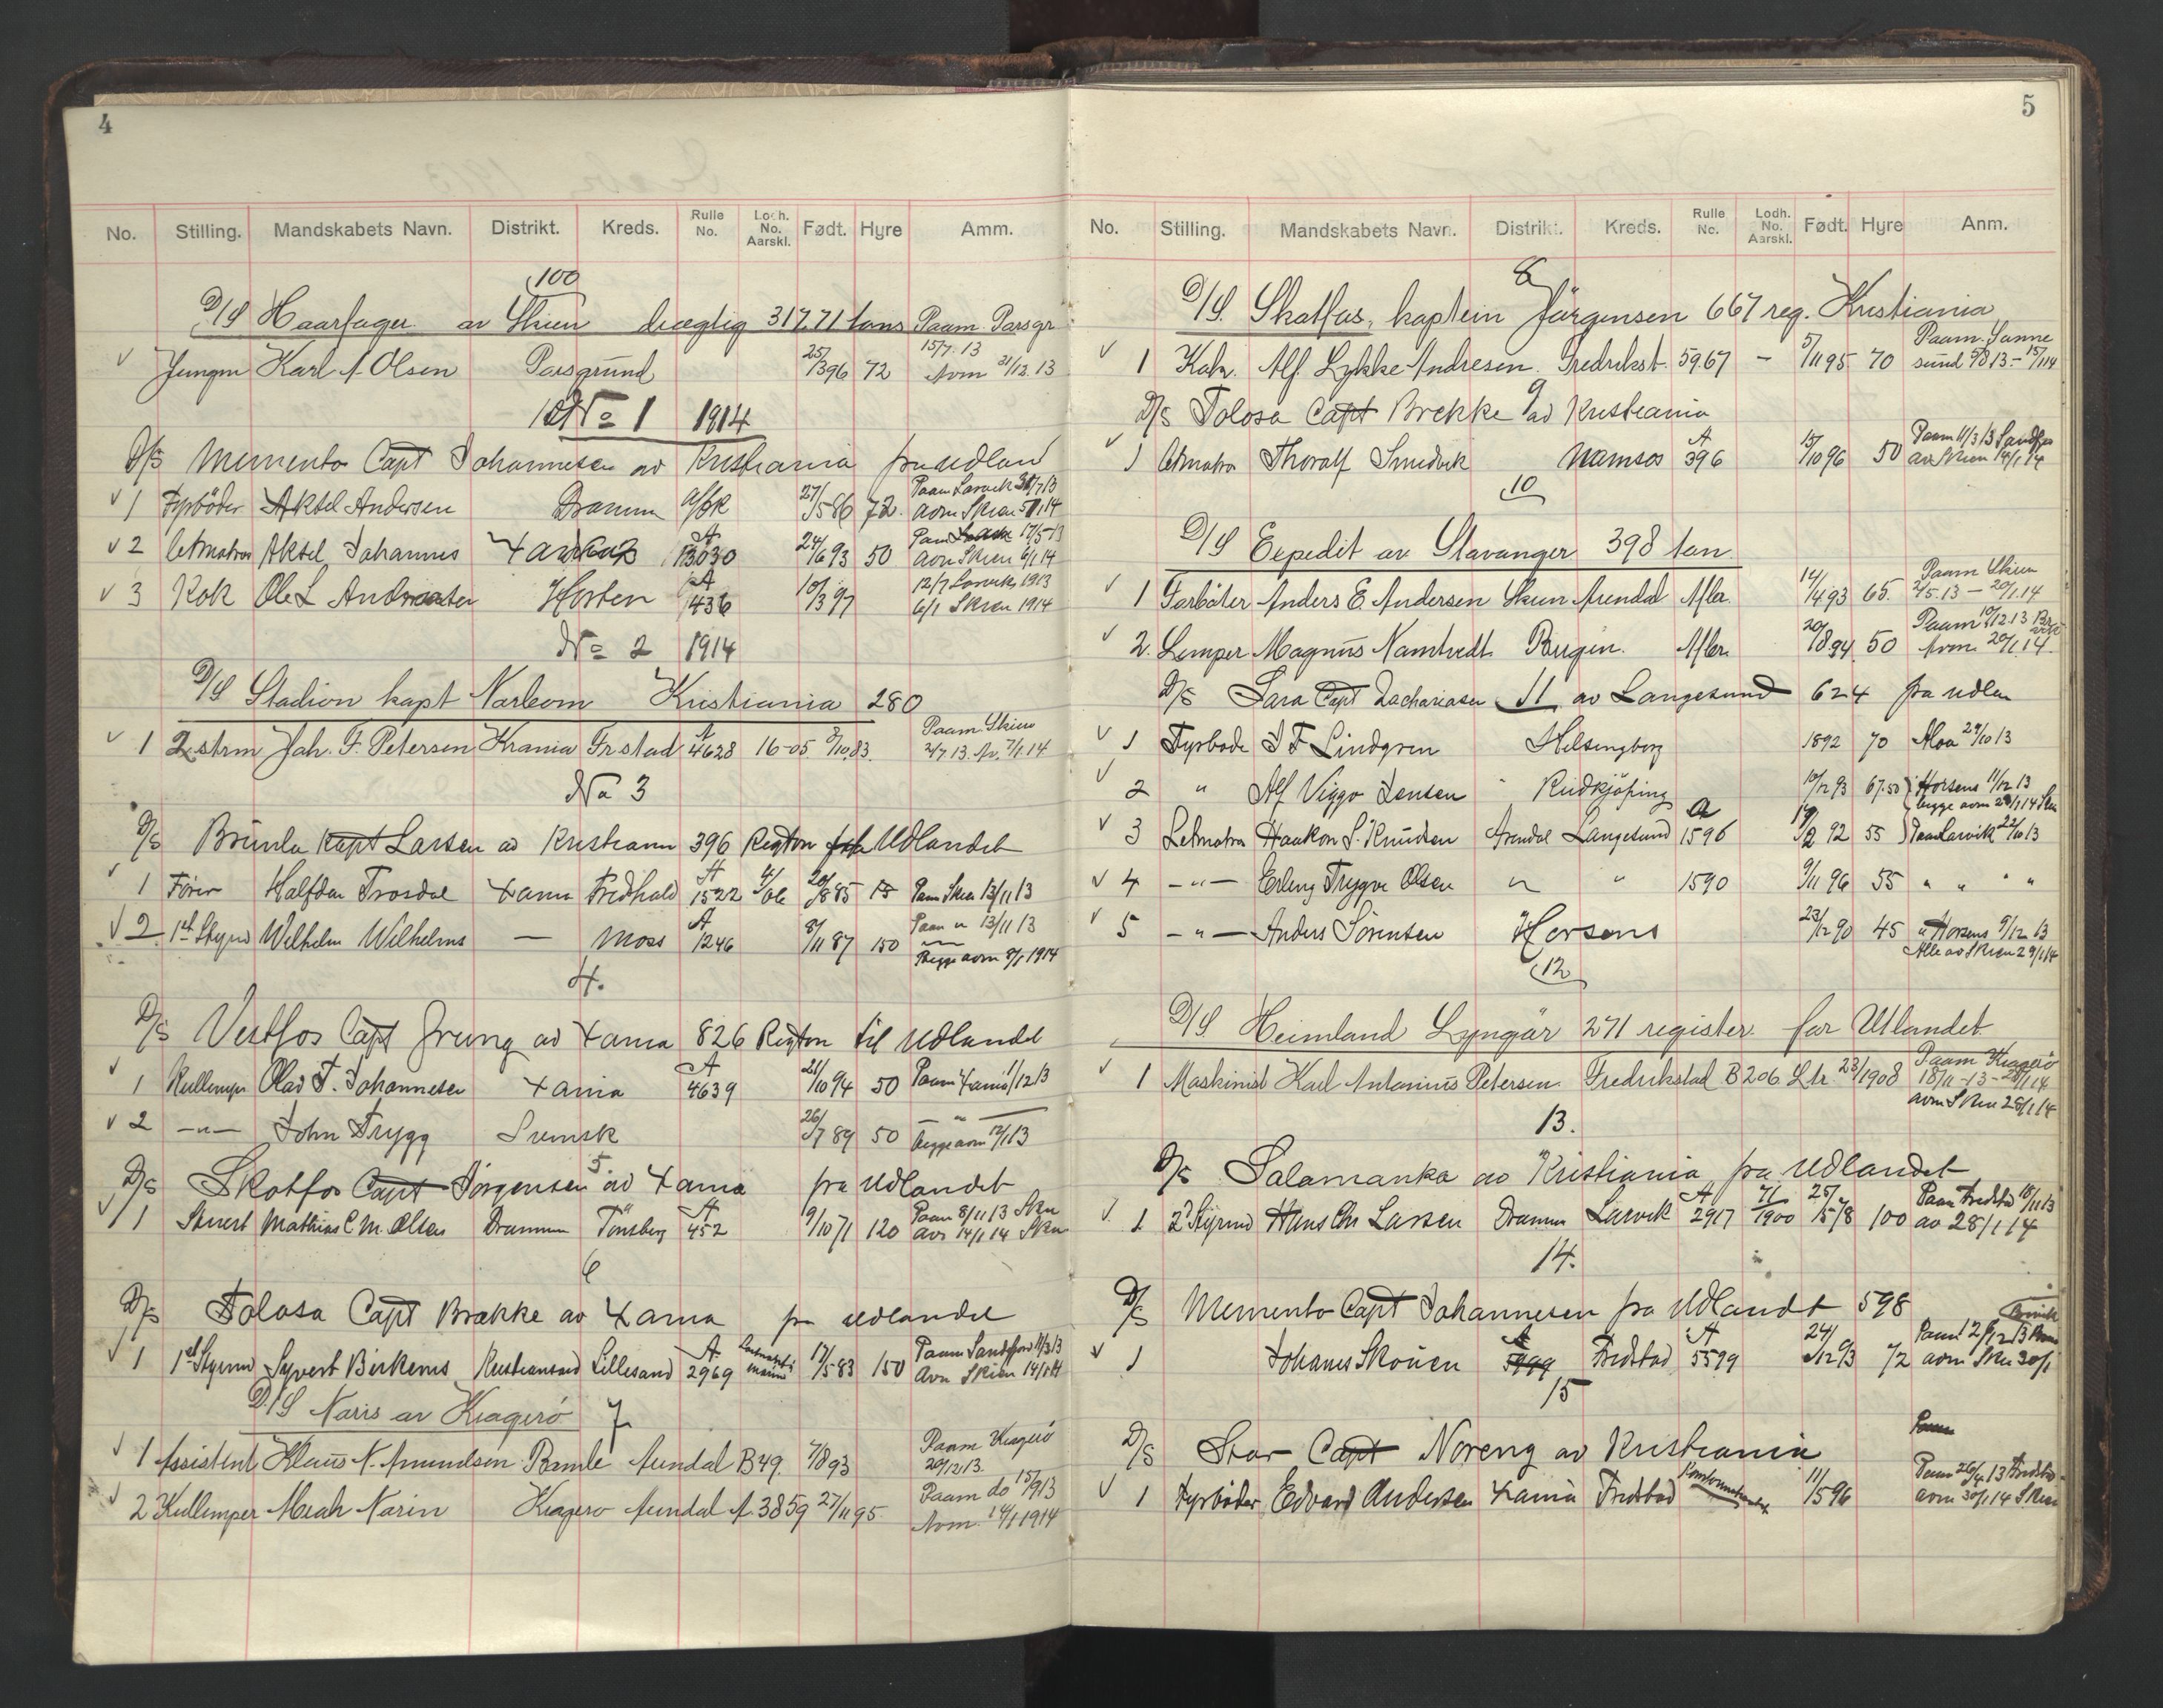 4
No. Stilling. Mandskabets Navn. Distrikt. Kreds. Rulle No. Lodh. No. Aarskl. Født. Hyre Amm.
100
D/S Haarfager av Skien drægtig 317.71 tons Paam. Porsgr
Jungm Karl A. Olsen Porsgrund 25/3 96 72 15/7. 13 Avm 31/12. 13
No 1 1914
D/S Memento Capt Johannesen av Kristiania fra udland
1 Fyrböder Aksel Andersen Dramm 27/5 86 72. Paam Larvik 31/7 13 avm Skien 5/1 14
2 Letmatros Aksel Johannes 13030 24/6 93 50 17/5 13 avm Skien 6/1 14
3 Kok Ole L Horten A 436 10/3 97 12/7 Larvik 1913 6/1 Skien 1914
No 2 1914
D/S Stadion kapt Kristiania 280
1 2 strm Joh. F. Petersen Krania Frstad A 4628 16-05 83. Paam. Skien 2/7. 13. Av. 7/1. 14
No 3
D/S Brunla Kapt Larsen av 396 Regton Udlandet
1 Fører Halfdan Trosdal Xania Fredhald A 1522 20/8 85 15 Paam Skien 13/11 13
2 1st Styrm Wilhelm Wilhelms — Moss A 1246 8/11 87 150 Paam " 13/11 13
Begge avm 8/1 1914
4.
D/S Vestfos Capt av Xania 826 Regton til Udlandet
1 Kullemper Olav T. Johannesen Xania A 4639 21/10 94 50 Paam Xania 1/12 13
2 —"— John Trygg Svensk 26/7 89 50 — " — begge avm 12/1 13
5.
D/S Skotfos Capt Jörgensen av Xania fra Udlandet
1 Stuert Mathias C. M. Olsen Drammen Tönsberg A 452 9/10 71 120 Paam 8/11 13 Skn avm 14/1 14 Skn
6
D/S Tolosa Capt Brække av Xania fra udlandet
1 1st Styrm Syvert Birkenes Kristiansand Lillesand A. 2969 17/5 83 150 Paam Sandefjord 11/3 13 Avm Skien 14/1 14
D/S Naris av Kragerö 7
1 Assistent Klaus N. Amundsen Bamle Arendal B 49. 7/8 93 Paam Kragerö 20/12 13.
2 Kullemper Meah Narin Kragerö Arendal A. 3859 27/11 95. Paam do 15/9 13 Avm. 14/1 1914
5
No. Stilling. Mandskabets Navn. Distrikt. Kreds. Rulle No. Lodh. No. Aarskl. Født. Hyre Anm.
8
D/S. Skotfos, kaptein Jörgensen 667 reg. Kristiania
1 Alf. Lykke Andresen. Fredrikst. 5967 — 5/11 95 70 Paam. Sannesund 13 - 15/1 14
9
D/S Tolosa Capt Brekke av Kristiania
1 Letmatro Thoralf Smedvik Namsos A 396 15/10 96 50 Paam 11/3 13 av Skien 14/1 14
10
D/S Expedit av Stavanger 398 ton
1 Fyrböter Anders E. Andersen Skien Arendal Afler. 14/4 93 65. Paam Skien 2/5. 13 — 20/1. 14
2. Lemper Magnus Namtvedt. Bergen. Afler. 20/8 94 50 Paam 10/12. 13 Avm. 20/1. 14.
D/S Sara Capt Zachariasen 11 av Langesund 624 fra udlan
1 Fyrböde J F Lindgren Helsingborg 1892 70 29/10 13
2 " Alf Viggo Jensen Rudkjöping 10/12 93 67.50 Horsens 11/12 13 begge avm 29/1 14
3 Letmatro Haakon S. Knudsen Arendal Langesund A 1596 92 55 Paam Larvik 22/10 13
4 —"— Erling Trygve Olsen " " 1590 9/11 96 55 " " " "
5 —"— Anders Sörensen Horsens 23/12 90 45 " Horsens 9/12 13
Alle av Skien 29/1 14
12
D/S Heimland Lyngör 271 register. for Utlandet
1 Maskinist Karl Antonius Petersen. Fredrikstad B 206 23/1908 Paam Kragerö 18/11 - 13 - 28/1 14 avm Skien 28/1 14
13.
D/S Salamanka av Kristiania fra Udlandet
1 2 Styrmd Hans Chr Larsen Dramm Larvik A 2917 71/1900 25/5 78 100 Paam Fredstd 18/11 13 av 28/1 14
14.
D/S Memento Capt Johannesen fra Udlandet 598
1 Johanes Skouen Fredstad A 5579 24/12 93 72 Paam 12/12 13 avm Skn 30/1
15
D/S Star Capt Noreng av Kristiania
1 Fyrböder Edvard Andersen Xania Fredstad 11/5 96 Paam 26/4. 13 Fredstd avm 30/1 14 Skien